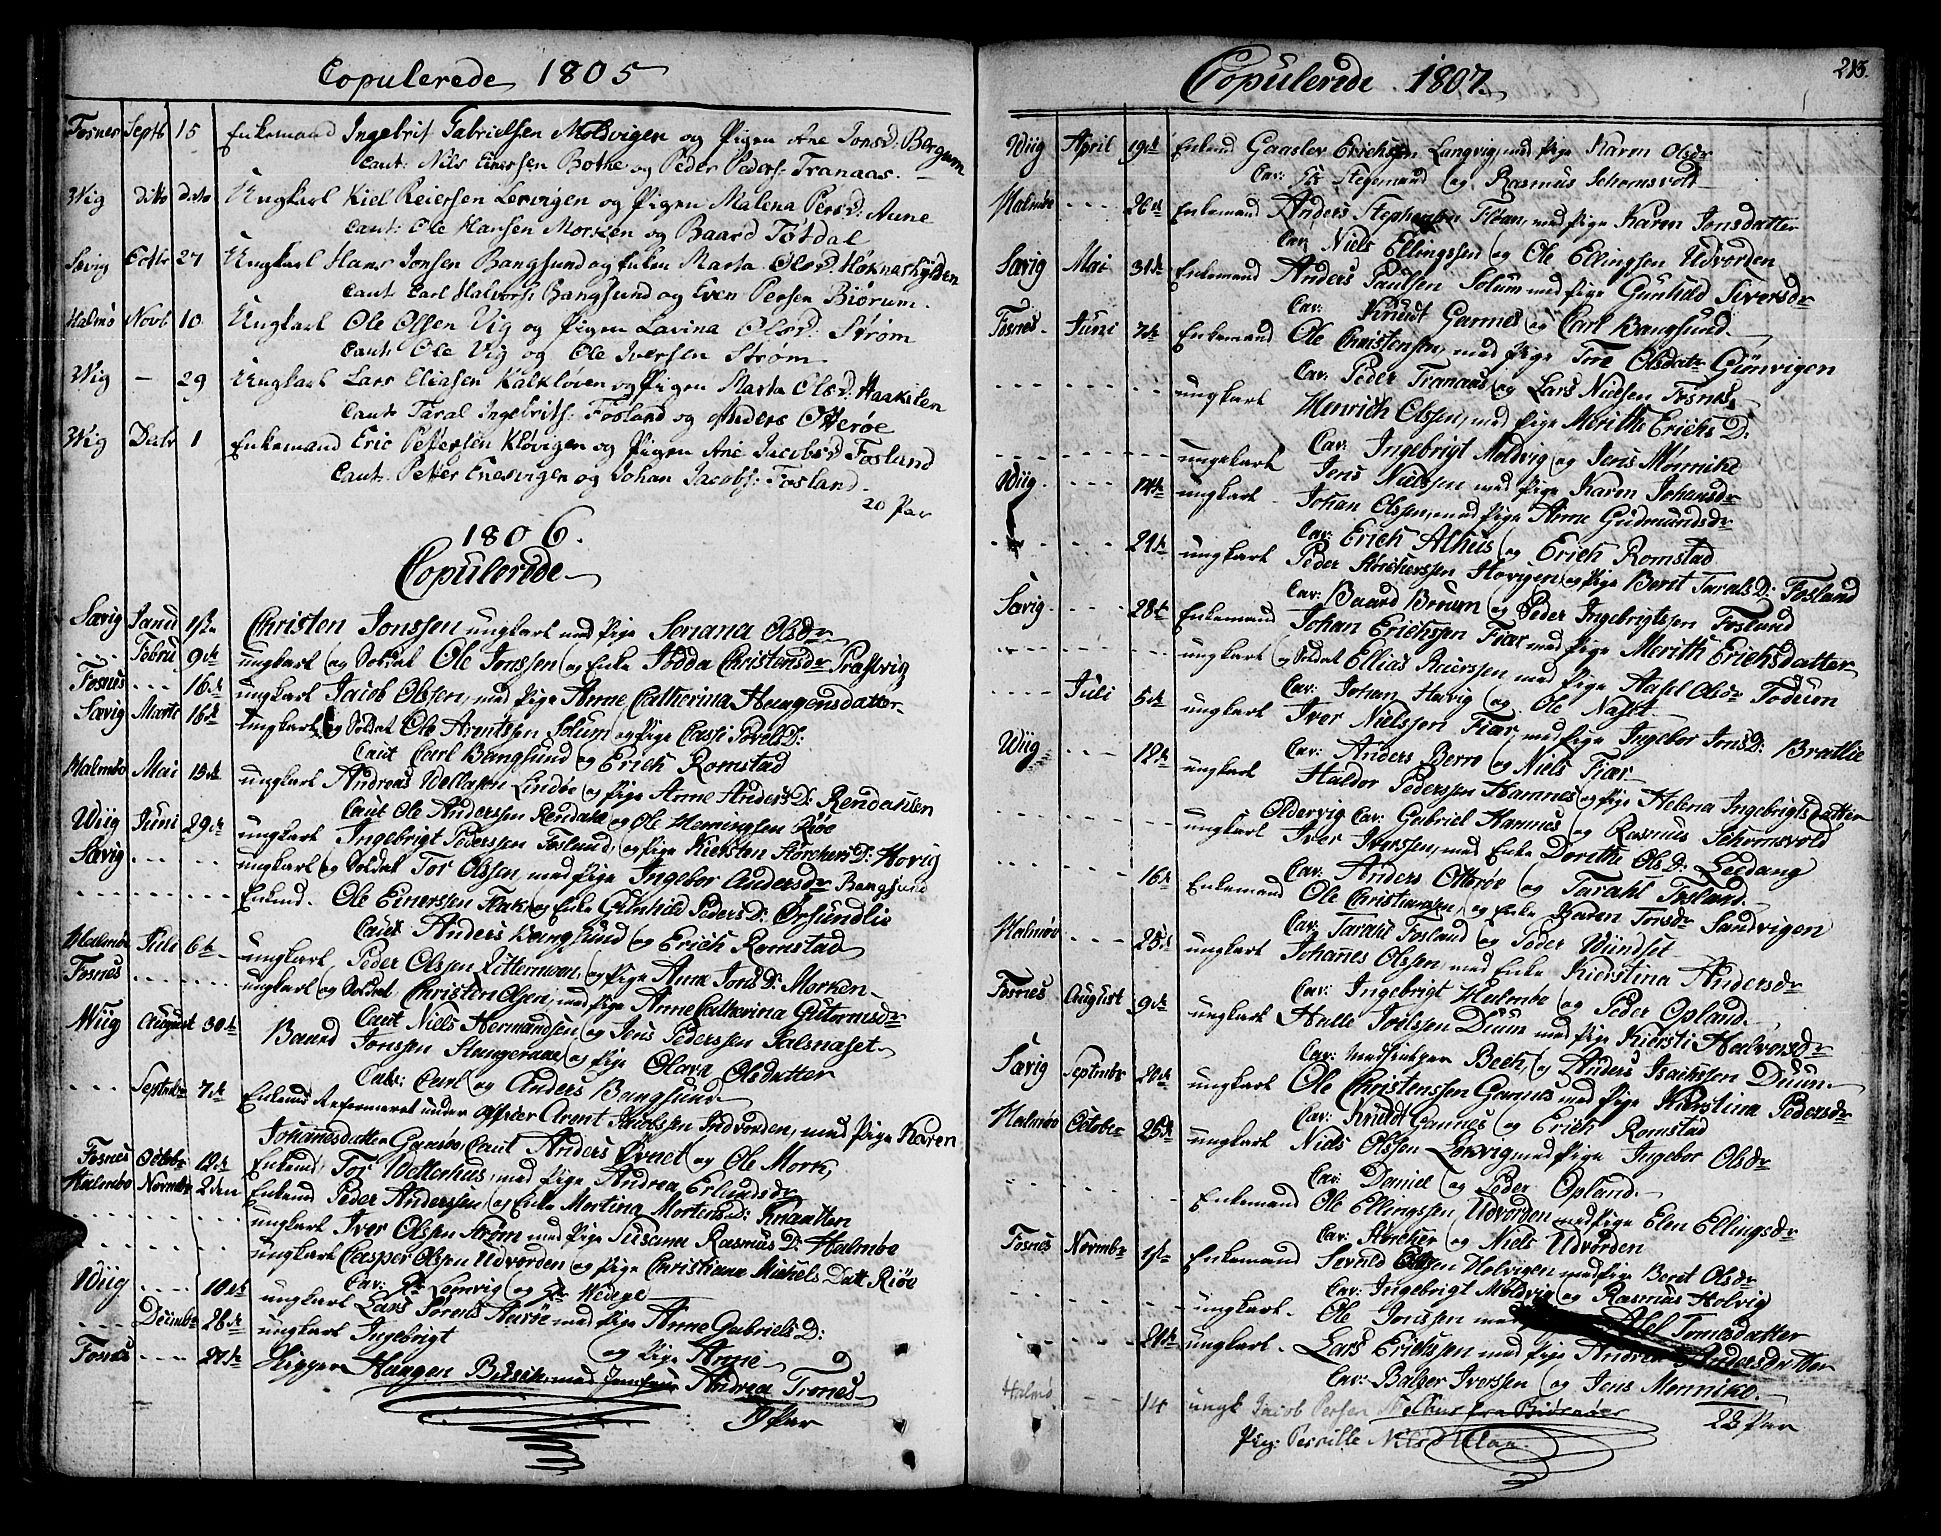 Copulerede 1805
Fosnes Septb 15 Enkemand Ingebrit Gabrielsen Moldvigen og Pigen Ane Jonsd: Bergum
Caut: Nils Enersen Bothe og Peder Peders: Tranaas.
Wiig Dito Dito Ungkarl Kiel Reiersen Lervigen og Pigen Malena Persd: Aune
Caut: Ole Hansen Morken og Baard Totdal
Sævig Octbr 27 Ungkarl Hans Jonsen Bangsund og Enken Marta Olsd: Høknashylden
Caut: Carl Halvors: Bangsund og Even Persen Biørum.
Halmø Novb 10 Ungkarl Ole Olsen Vig og Pigen Lavina Olsd: Strøm
Caut: Ole Vig og Ole Iversen Strøm
Wiig — 29 Ungkarl Lars Eliasen Kalkløven og Pigen Marta Olsd: Haakslen
Caut: Taral Ingebrits: Fosland og Anders Otterøe
Wiig Decbr 1 Enkemand Eric Pettersen Kløvigen og Pigen Ane Jacobsd Fosland
Caut. Petter Enesvigen og Johan Jacobs: Fosland
20 Par
1806.
Copulerede
Sævig Jand 1ste Christen Jonssen ungkarl med Pige Olsdr
Febru 9de ungkarl og Soldat Ole Jonssen og Enke Christensdr
Fosnes 16de ungkarl Jacob Olssen, med Pige Anne Catherina Haagensdatter
Sævig Marti 16de Ungkarl og Soldat Ole Arentssen Solum og Pige Povels D:
Caut Carl Bangsund og Erich Romstad
Halmøe Mai 15de ungkarl Andreas Lindøe og Pige Anne Anders D:
Caut Ole Anderssen og Ole Hemingsen Riøe
Wiig Juni 29de ungkarl Ingebrigt Pederssen Fosland, og Pige Kiersten Storchers D: Hovig
Sævig ungkarl og Soldat Tor Olssen, med Pige Ingebor Andersdr Bangsund
Enkmd. Ole Einerssen Flak og Enke Gunhild Peders D: Ørsundlie
Caut Anders Bangsund og Erich Romstad
Halmøe Juli 6te ungkarl Peder Olssen og Pige Anna Jons D: Morken
Fosnes ungkarl og Soldat Christen Olsen, med Pige Anne Catharina Gutormsdr
Caut Niels Hermandsen og Jens Pederssen Salsnaset
Wiig August 30te Baard Jonssen og Pige Olava Olsdatter
Caut: Carl og Anders Bangsund
Septembr 7de Enkemd Reformeret under officier Arent Jacobssen Indvorden, med Pige Karen
Johannesdatter Caut Anders Øvnet og Ole Mork
Fosnes Octobr 12te Enkemd Tor Wetterhus, med Pige Andrea Erlandsdr
Halmøe Novmbr 2den Enkemd Peder Anderssen og Enke Martina Mortens D:
ungkarl Iver Olssen Strøm med Pige Susana Rasmus D: Halmøe
ungkarl Casper Olsen Udvorden og Pige Christiana Michels Datt Riøe
Cav: Hr Lervig og Hr
Wiig 10de ungkarl Lars Sørens med Pige Anne Gabriels D:
Decembr 28de ungkarl Ingebrigt og Pige Anne
Fosnes Haagen og Andrea Trones
19 Par
Copulerede 1807. 215.
Wiig April 19de Enkmd Gaasler Erichsen Langvig, med Pige Karen Olsdr
Cav: Stegemand og Rasmus
Halmøe 26de Enkemand Anders Stephensen med Pige Karen Jonsdatter
Cav Niels Ellingssen og Ole Ellingsen Udvorden
Sævig Mai 31te Enkemand Anders Paulsen Solum med Pige Gunhild Siversdr
Cav: Knudt Garnes og Carl Bangsund
Fosnes Juni 7de Enkemand Ole Christensen, med Pige Olsdatr
Cav: Peder Tranaas og Lars Nielsen Fosnes
ungkarl Henrich Olssen, med Pige Merithe Erichs D:
Cav: Ingebrigt Moldvig og Jens Mønniche
ungekarl Jens Nielssen med Pige Karen Johansdr
Wiig 14de ungkarl Johan Olssen, med Pige Anne Gudmundsdr
Cav: Erich Alhus og Erich Romstad
24de ungkarl Peder Storcherssen Hovigen og Pige Berit Tarals D: Fosland
Cav: Baard Berum og Peder Ingebrigtssen Fosland
Sævig 28de Enkemand Johan Erichssen Fiær med Pige Merith Erichsdatter
ungkarl og Soldat Ellias Reierssen med Pige Aasel Olsdr Todum
Cav: Johan Havig og Ole
Juli 5de ungkarl Iver Nielssen Fiær, med Pige Ingebor Jons D: Bratlie
Cav: Anders Berre og Niels Fiær
Wiig 12te ungkarl Haldor Pederssen Hamnes og Pige Helena Ingebrigtsdatter
Oldervig Cav: Gabriel Hamnes og Rasmus
ungkarl Iver Iverssen, med Enke Dorithe Ols D: Leedang
Cav: Anders Otterøe og Taralt Fosland
16de Enkemand Ole Christianssen, og Enke Karen Torsdr Sandvigen
Cav: Taralt Fosland og Peder Wiindset
Halmøe 25de ungkarl Johannes Olssen med Enke Kierstina Andersdr
Cav: Ingebrigt Halmøe og Peder Opland
Fosnes August 9de ungkarl Halle Joelssen Duun med Pige Kiersti Halvorsdr
Cav: Beck og Anders Isachssen Duun
Sævig Septembr 20de ungkarl Ole Christenssen Garnes med Pige Kierstina Pedersdr
Cav: Knudt Garnes og Erich Romstad
Halmøe Octobr 25de ungkarl Niels Olssen Lervig med Pige Ingebor Olsdr
Cav: Daniel og Peder Opland
Enkemand Ole Ellingssen Udvorden med Pige Elen Ellingsdr
Cav: Storcher og Niels Udvorden
Fosnes Novmbr 1ste Enkemand Holvigen med Pige Berit Olsdr
Cav: Ingebrigt Moldvig og Rasmus Holvig
ungkarl. Ole Jonssen med Tomasdatter
ungkarl. Lars Erichssen med Pige Andrea Andersdatter
Cav: Balzer Iverssen og Jens Mennike
Halmø — 14 ungk Jacob Persen fra Biørnøer 23 Par
Pig: Pernille Nils